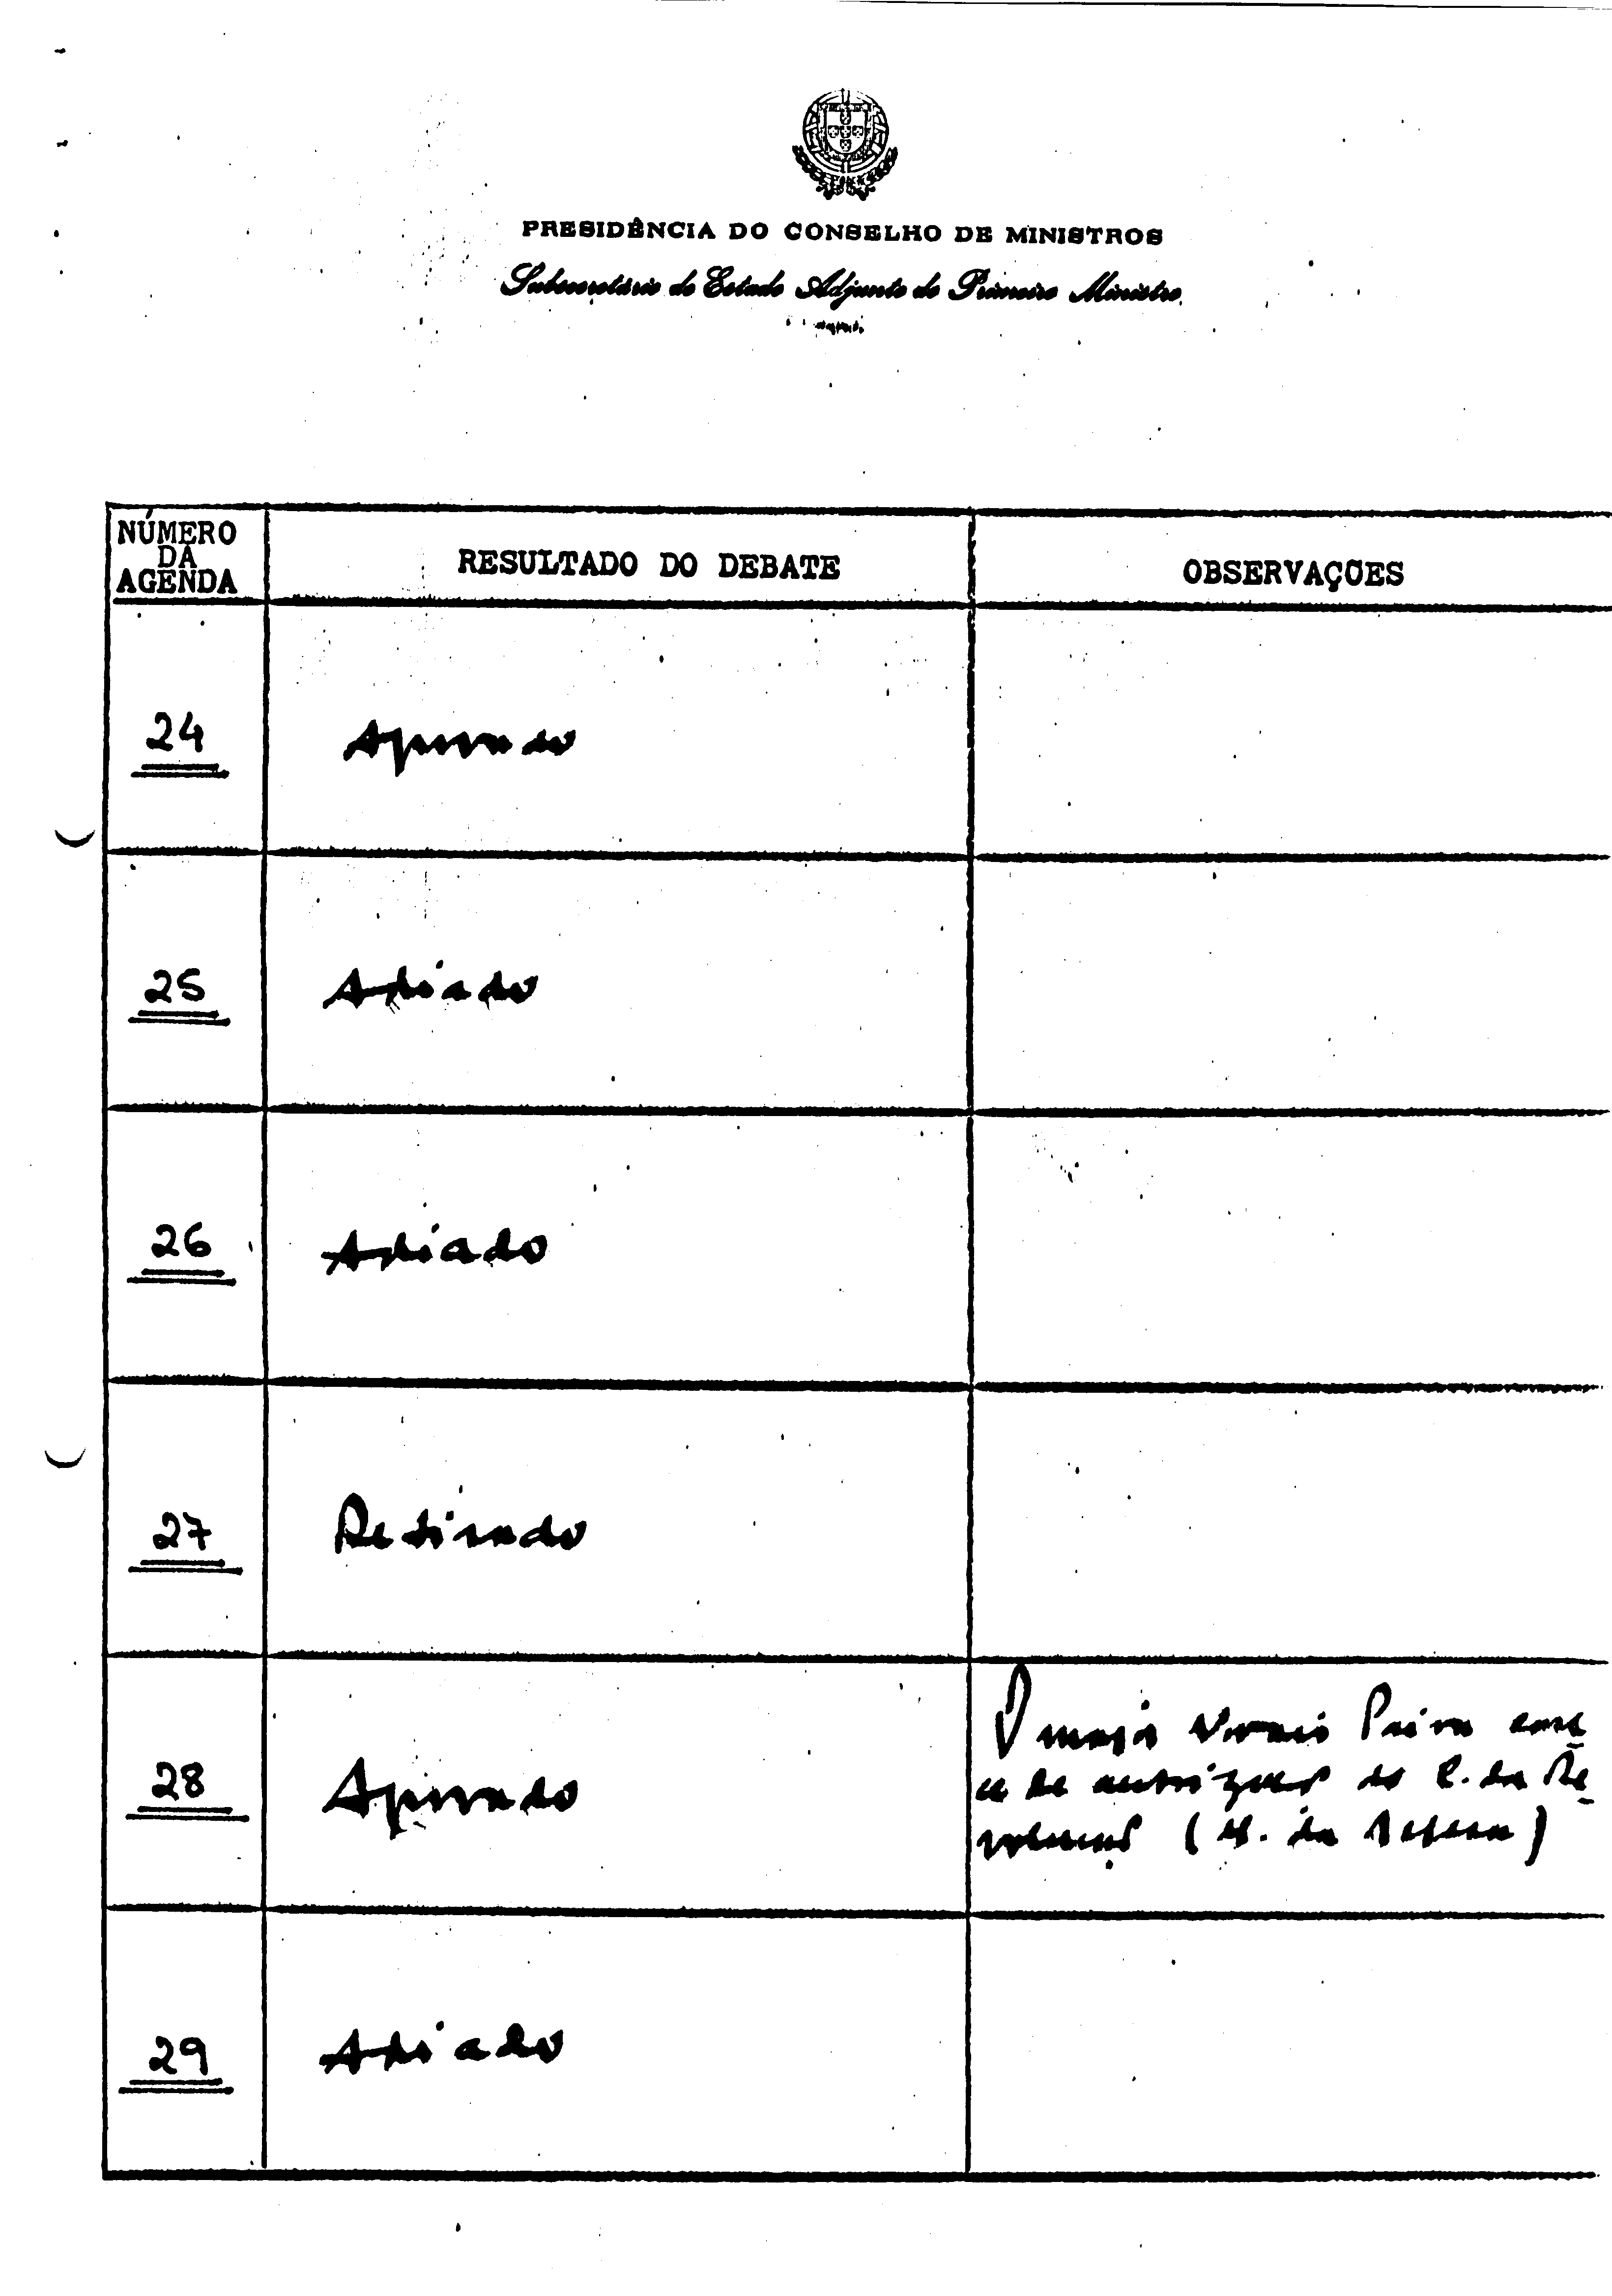 PRESIDÊNCIA DO CONSELHO DE MINISTROS
Subsecretário de Estado Adjunto do Primeiro Ministro
NÚMERO
DA
AGENDA
RESULTADO DO DEBATE
OBSERVAÇÕES
24
Aprovado
25
Adiado
26
Adiado
27
Retirado
28
Aprovado
O major Morais Paiva care
ce de autorização do C. da Re
volução (M. da Defesa)
29
Adiado